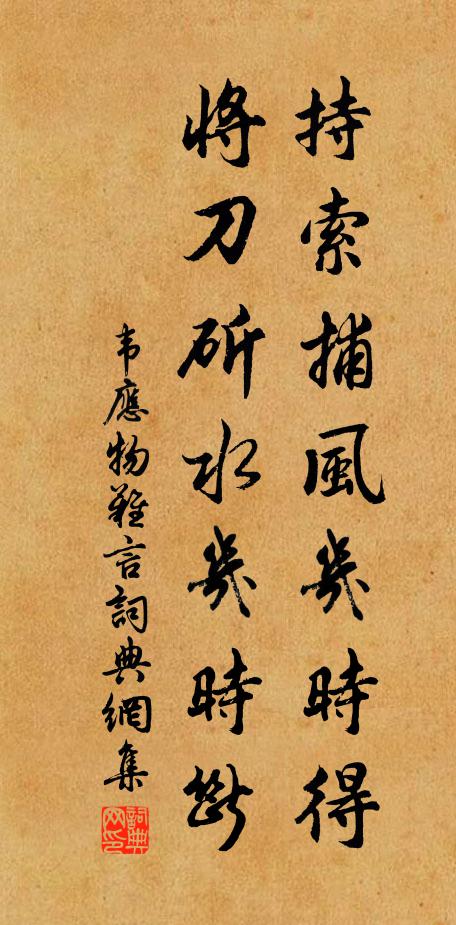 持索捕風幾時得
將刀斫水幾時斷
韦應物難言詞典網集
詞典
网印